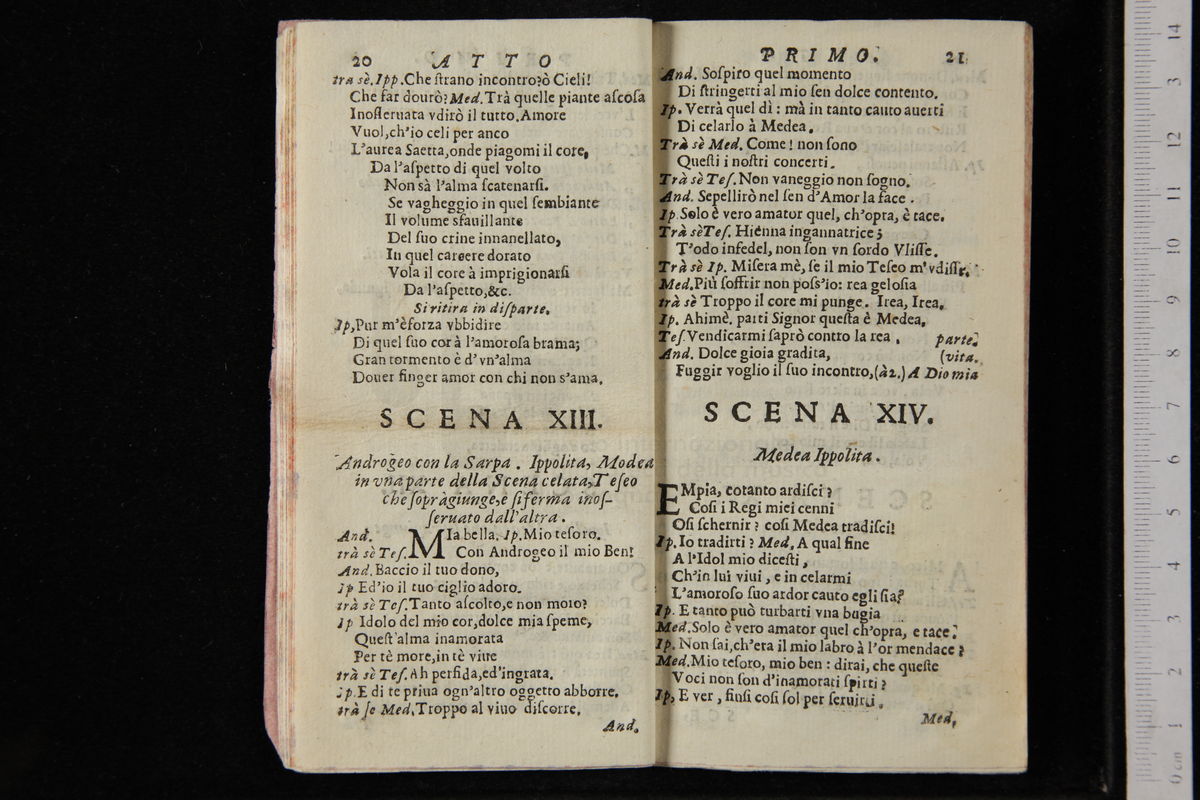 20 ATTO
trà sè. Ipp. Che ſtrano incontro?ò Cieli!
Che far dourò? Med. Trà quelle piante aſcoſa
Inoſſeruata vdirò il tutto. Amore
Vuol, ch'io celi per anco
L'aurea Saetta, onde piagomi il core,
Da l'aſpetto di quel volto
Non sà l'alma ſcatenarſi.
Se vagheggio in quel ſembiante
Il volume sfauillante
Del ſuo crine innanellato,
In quel carcere dorato
Vola il core à imprigionarſi
Da l'aſpetto, &c.
Si ritira in diſparte.
Ip, Pur m'è forza vbbidire
Di quel ſuo cor à l'amoroſa brama;
Gran tormento è d'vn'alma
Douer finger amor con chi non s'ama.
SCENA XIII.
Androgeo con la Sarpa. Ippolita, Modea
in vna parte della Scena celata, Teſeo
che ſopràgiunge, è ſi ferma inoſ-
ſeruato dall'altra.
And. MIa bella. Ip. Mio teſoro.
trà sè Teſ. Con Androgeo il mio Ben!
And. Baccio il tuo dono,
Ip Ed'io il tuo ciglio adoro.
trà sè Teſ. Tanto aſcolto, e non moro?
Ip Idolo del mio cor, dolce mia ſpeme,
Queſt'alma inamorata
Per tè more, in tè viue
trà sè Teſ. Ah perfida, ed'ingrata.
Ip. E di te priua ogn'altro oggetto abborre.
trà ſe Med. Troppo al viuo diſcorre.
And.
PRIMO. 21
And. Soſpiro quel momento
Di ſtringerti al mio ſen dolce contento.
Ip. Verrà quel dì: mà in tanto cauto auerti
Di celarlo à Medea.
Trà sè Med. Come! non ſono
Queſti i noſtri concerti.
Trà sè Teſ. Non vaneggio non ſogno.
And. Sepellirò nel ſen d'Amor la face.
Ip. Solo è vero amator quel, ch'opra, è tace.
Trà sè Teſ. Hienna ingannatrice;
T'odo infedel, non ſon vn ſordo Vliſſe.
Trà sè Ip. Miſera mè, ſe il mio Teſeo m'vdiſſe.
Med. Più ſoffrir non poſs'io: rea geloſia
trà sè Troppo il core mi punge. Irea, Irea.
Ip. Ahimè. parti Signor queſta è Medea.
Teſ. Vendicarmi ſaprò contro la rea. parte.
And. Dolce gioia gradita, (vita.
Fuggir voglio il ſuo incontro, (à 2.) A Dio mia
SCENA XIV.
Medea Ippolita.
EMpia, cotanto ardiſci?
Coſi i Regi miei cenni
Oſi ſchernir? coſi Medea tradiſci!
Ip. Io tradirti? Med. A qual fine
A l'Idol mio diceſti,
Ch'in lui viui, e in celarmi
L'amoroſo ſuo ardor cauto egli ſia?
Ip. E tanto può turbarti vna bugia
Med. Solo è vero amator quel ch'opra, e tace.
Ip. Non ſai, ch'era il mio labro à l'or mendace?
Med. Mio teſoro, mio ben: dirai, che queſte
Voci non ſon d'inamorati ſpirti?
Ip. E ver, finſi coſi ſol per ſeruirti.
Med.
0 cm 1 2 3 4 5 6 7 8 9 10 11 12 13 14